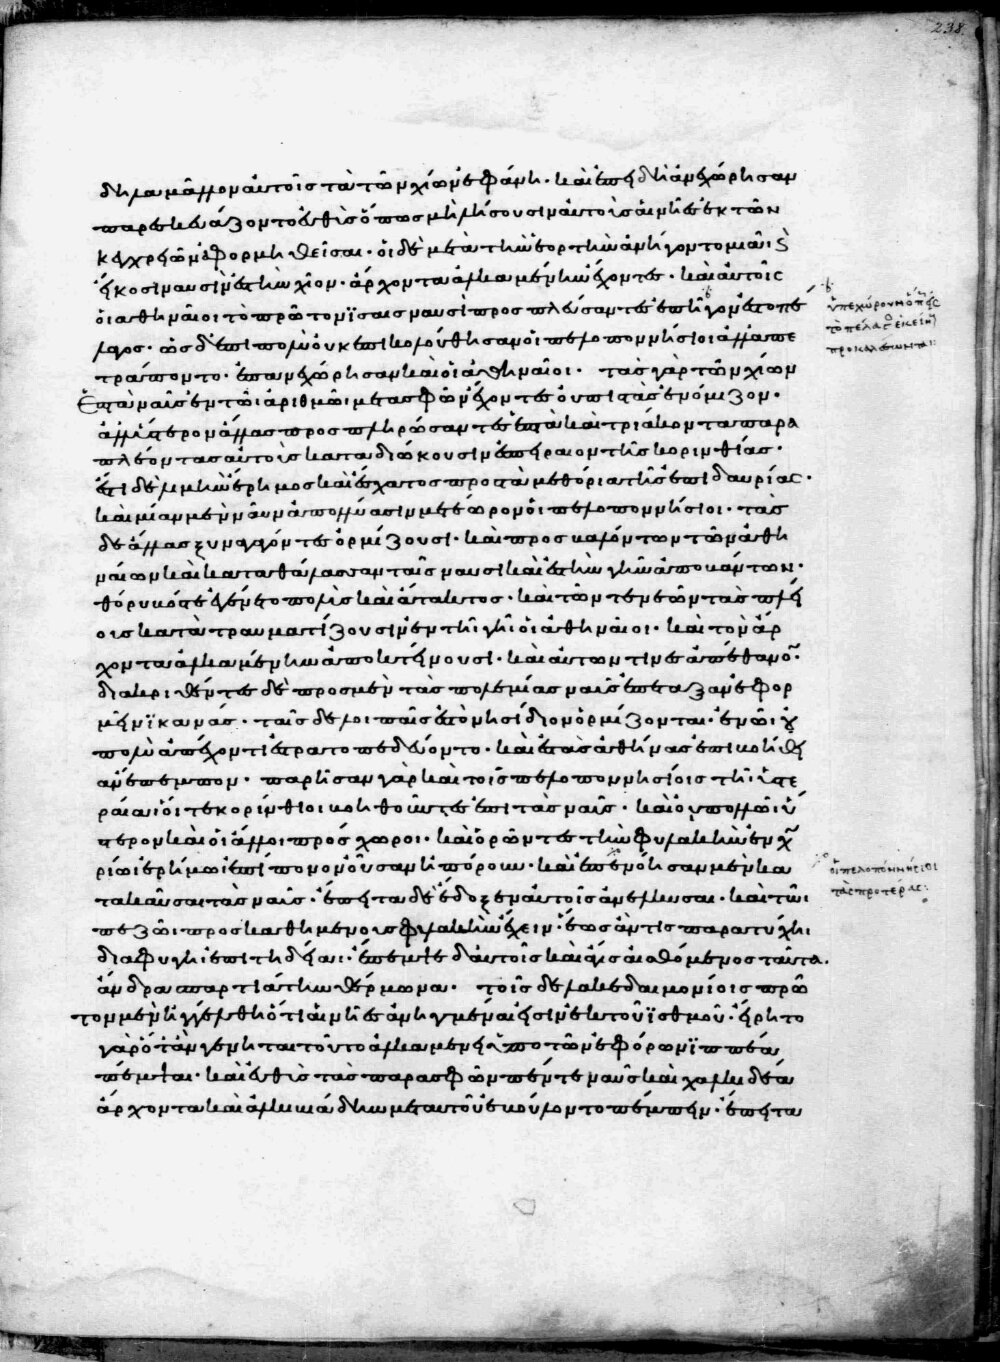 238
δηλα μᾶλλον αὐτοῖς τὰ τῶν χίων ἐφάνη· καὶ ἐπειδὴ ἀνεχώρησαν
παρεσκευάζοντο εὐθὺς ὅπως μὴ λήσουσιν αὐτοὺς αἱ νῆες ἐκ τῶν
κεγχρεῶν ἀφορμηθεῖσαι· οἱ δὲ μετὰ τὴν ἑορτὴν ἀνήγοντο μιᾶι καὶ
εἴκοσι ναυσὶν ἐς τὴν χίον· ἄρχοντα ἀλκαμένην ἔχοντες· καὶ αὐτοῖς
οἱ ἀθηναῖοι τὸ πρῶτον ἴσαις ναυσὶ προσπλεύσαντες ἐπῆγον ἐς τὸ πέ
λαγος· ὡς δ' ἐπὶ πολὺ οὐκ ἐπηκολούθησαν οἱ πελοποννήσιοι ἀλλ' ἀπε
τράποντο· ἐπανεχώρησαν καὶ οἱ ἀθηναῖοι· τὰς γὰρ τῶν χίων
ἑπτὰ ναῦς ἐν τῶι ἀριθμῶι μετὰ σφῶν ἔχοντες οὐ πιστὰς ἐνόμιζον·
ἀλλ' ὕστερον ἄλλας προσπληρώσαντες ἑπτὰ καὶ τριάκοντα παρα
πλέοντας αὐτοὺς καταδιώκουσιν ἐς πειραιὸν τῆς κορινθίας·
ἔστι δὲ λιμὴν ἐρῆμος καὶ ἔσχατος πρὸς τὰ μεθόρια τῆς ἐπιδαυρίας·
καὶ μίαν μὲν ναῦν ἀπολλύασιν μετέωρον οἱ πελοποννήσιοι· τὰς
δὲ ἄλλας ξυναγαγόντες ὁρμίζουσι· καὶ προσβαλόντων τῶν ἀθη
ναίων καὶ κατὰ θάλασσαν ταῖς ναυσὶ καὶ ἐς τὴν γῆν ἀποβάντων·
θόρυβός τε ἐγένετο πολὺς καὶ ἄτακτος· καὶ τῶν τε νεῶν τὰς πλεί
ους κατὰ τραυματίζουσιν ἐν τῆι γῆι οἱ ἀθηναῖοι· καὶ τὸν ἄρ
χοντα ἀλκαμένην ἀποκτείνουσι· καὶ αὐτῶν τινες ἀπέθανον·
διακριθέντες δὲ πρὸς μὲν τὰς πολεμίας ναῦς ἐπέταξαν ἐφορ
μεῖν ἱκανάς· ταῖς δὲ λοιπαῖς ἐς τὸ νησίδιον ὁρμίζονται· ἐν ὧι οὐ
πολὺ ἀπέχοντι ἐστρατοπεδεύοντο· καὶ ἐς τὰς ἀθήνας ἐπὶ βοήθει
αν ἔπεμπον· παρῆσαν γὰρ καὶ τοῖς πελοποννησίοις τῆι ὑστε
ραίαι οἵ τε κορίνθιοι βοηθοῦντες ἐπὶ τὰς ναῦς· καὶ οὐ πολλῶι ὕ
στερον καὶ οἱ ἄλλοι πρόσχωροι· καὶ ὁρῶντες τὴν φυλακὴν ἐν χω
ρίωι ἐρήμωι ἐπίπονον οὖσαν ἠπόρουν· καὶ ἐπενόησαν μὲν κα
τακαῦσαι τὰς ναῦς· ἔπειτα δὲ ἔδοξεν αὐτοῖς ἀνελκύσαι· καὶ τῶι
πεζῶι προσκαθημένους φυλακὴν ἔχειν· ἕως ἄν τις παρατύχηι
διαφυγὴ ἐπιτηδεία· ἔπεμψε δ' αὐτοῖς καὶ ἆγις αἰσθόμενος ταῦτα·
ἄνδρα σπαρτιάτην θέρμωνα· τοῖς δὲ λακεδαιμονίοις πρῶ
τον μὲν ἠγγέλθη ὅτι αἱ νῆες ἀνηγμέναι εἰσὶν ἐκ τοῦ ἰσθμοῦ· εἴρητο
γὰρ ὅταν γένηται τοῦτο ἀλκαμένει ὑπὸ τῶν ἐφόρων ἱππέα
πέμψαι· καὶ εὐθὺς τὰς παρὰ σφῶν πέντε ναῦς καὶ χαλκιδέα
ἄρχοντα καὶ ἀλκιβιάδην μετ' αὐτοῦ ἐβούλοντο πέμπειν· ἔπειτα
ὑπεχώρουν
τὸ πέλαγος ἐκείνους
προκαλούμενοι:
οἱ πελοποννήσιοι
τὰς προτέρας: